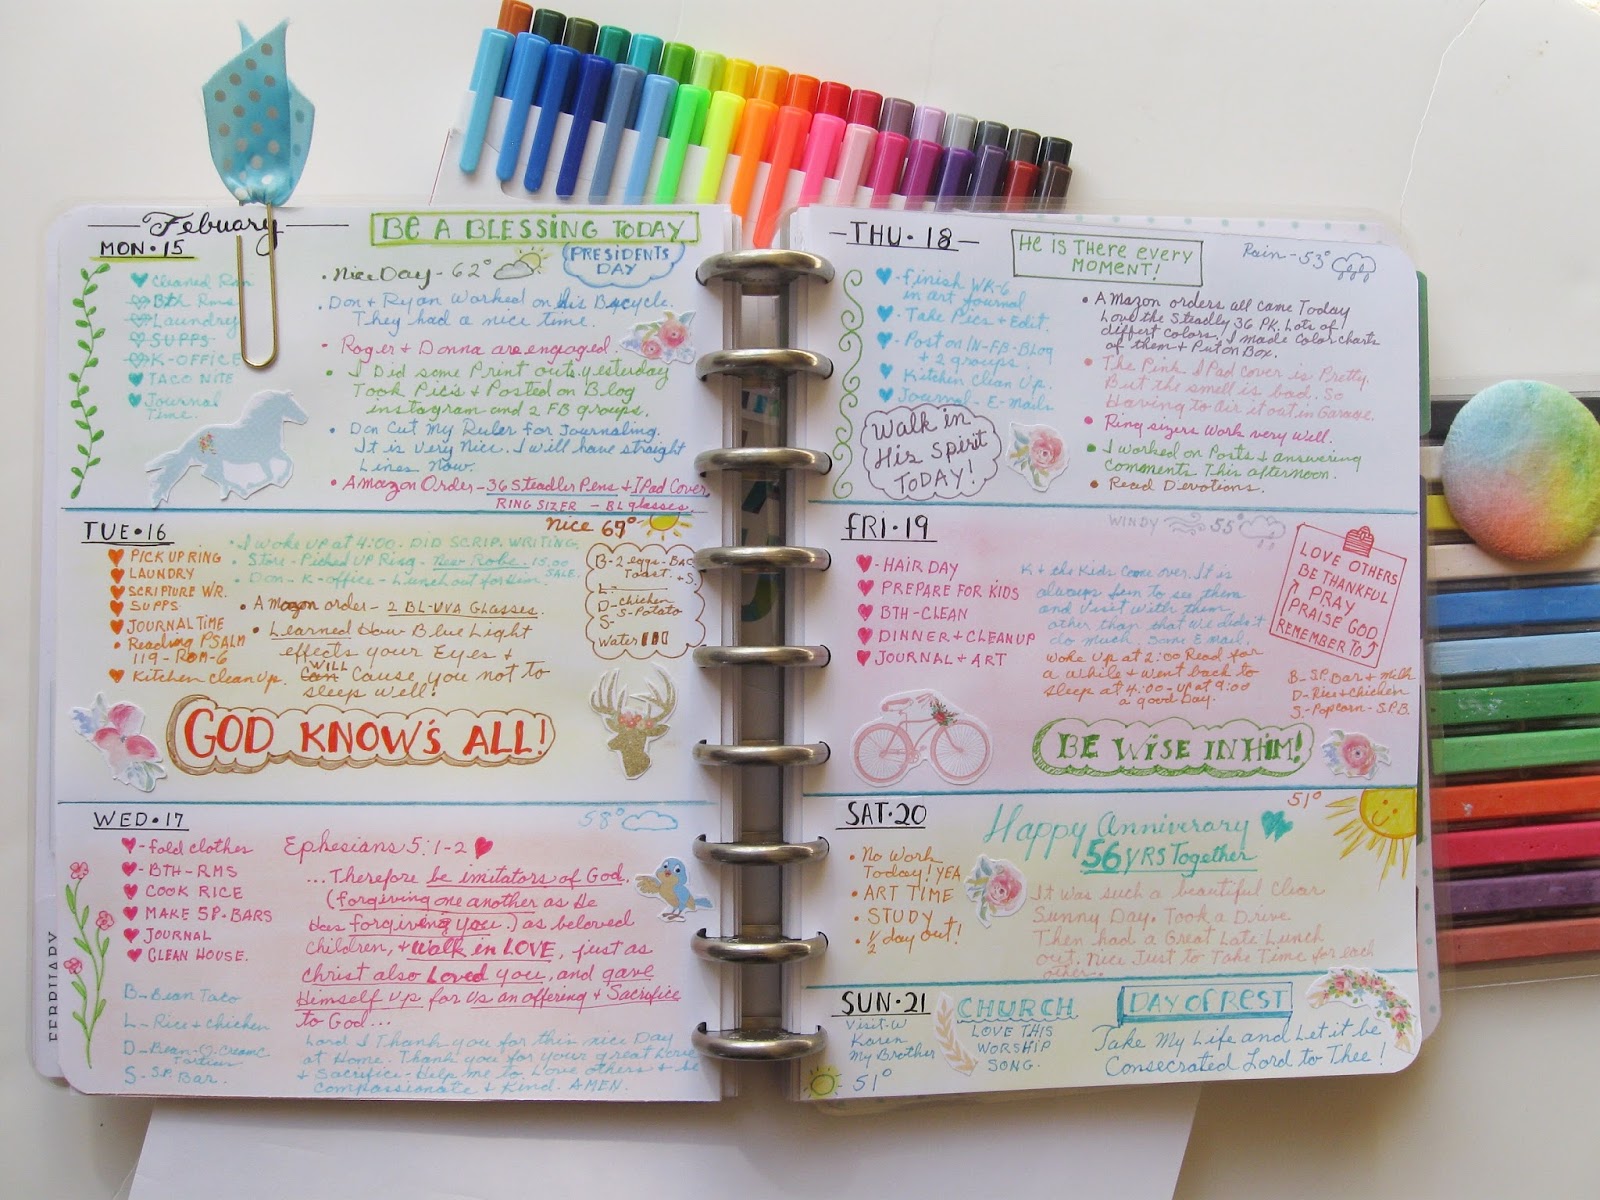 Febuary
BE A BLESSING TODAY
MON·15
PRESIDENTS
DAY
Cleaned Ran
Bth Rms
Laundry
SUPPS
K-OFFICE
TACO NITE
Journal
Time.
• Nice Day - 62°
• Don + Ryan Worked on his Bycycle.
They had a nice time.
• Roger + Donna are engaged.
• I Did some Print outs yesterday
Took Pic's + Posted on Blog
instagram and 2 FB groups.
• Don Cut My Ruler for Journaling.
It is Very Nice. I will have straight
Lines Now.
• Amazon Order - 36 Steadler Pens + IPad Cover
RING SIZER - BL glasses.
TUE·16
Nice 69°
PICK UP RING
LAUNDRY
SCRIPTURE WR.
SUPPS
JOURNAL TIME
• Reading PSALM
119 - ROM-6
Kitchen clean up.
• I woke up at 4:00. DID SCRIP. WRITING.
• Store - Picked UP Ring - New Robe. 15.00
SALE.
• Don - K-office - Lunch out for Him.
• Amazon order - 2 BL-UVA Glasses.
• Learned How Blue Light
effects your Eyes +
WILL
Can Cause you not to
sleep well!
B-2 eggs-Bac
Toast. + S.
L-
D-chicken
S-Potato
S-
Water
GOD KNOW'S ALL!
WED·17
58°
- fold clothes
- BTH-RMS
COOK RICE
MAKE SP-BARS
JOURNAL
CLEAN HOUSE.
B-Bean Taco
L-Rice + chicken
D-Bean-O-Creamc
S-S.P. Bar.
Ephesians 5:1-2
...Therefore be imitators of God.
(forgiving one another as He
Has forgiving you.) as beloved
children, + Walk in LOVE, just as
Christ also Loved you, and gave
Himself Up for Us an offering + Sacrifice
to God...
Lord I Thank you for this nice Day
at Home. Thank you for your great Love
+ Sacrifice - Help me to Love others + be
compassionate + Kind. AMEN.
FEBRUARY
-THU·18-
HE IS THERE EVERY
MOMENT!
Rain - 53°
- Finish WK-6
in art Journal
- Take Pics + Edit.
- Post on IN-FB-Blog
+ 2 groups.
Kitchen Clean Up.
Journal - E-Mails
Walk in
His Spirit
TODAY!
• Amazon orders all came Today
Love the Steadly 36 PK. Lots of
differt Colors. I made Color charts
of them + Put on Box.
• The Pink IPad cover is Pretty.
But the smell is bad. So
Having to air it out in Garage.
• Ring sizers Work very Well.
• I worked on Posts + answering
comments This afternoon.
• Read Devotions.
FRI·19
WINDY 55°
- HAIR DAY
PREPARE FOR KIDS
BTH-CLEAN
DINNER + CLEANUP
JOURNAL + ART
K + the Kids Come over. It is
always fun to see them
and Visit with them.
other than that We didn't
do much. Some E mail.
Woke Up at 2:00 Read for
a while + went back to
sleep at 4:00 - up at 9:00
a good Day.
LOVE OTHERS
BE THANKFUL
PRAY
PRAISE GOD
REMEMBER TO
B-S.P. Bar + Milk
D-Rice + chicken
S-Popcorn-S.P.B.
BE WISE IN HIM!
SAT·20
51°
Happy Anniverary
56 YRS Together
• No Work
Today! YEA
• ART TIME
• STUDY +
• 1/2 day out!
It was such a beautiful Clear
Sunny Day. Took a Drive
Then had a Great Late Lunch
out. Nice Just to Take Time for each
other.
SUN·21
Visit-W
Karen
My Brother
51°
CHURCH
LOVE THIS
WORSHIP
SONG.
DAY OF REST
Take My Life and Let it be
Consecrated Lord to Thee!